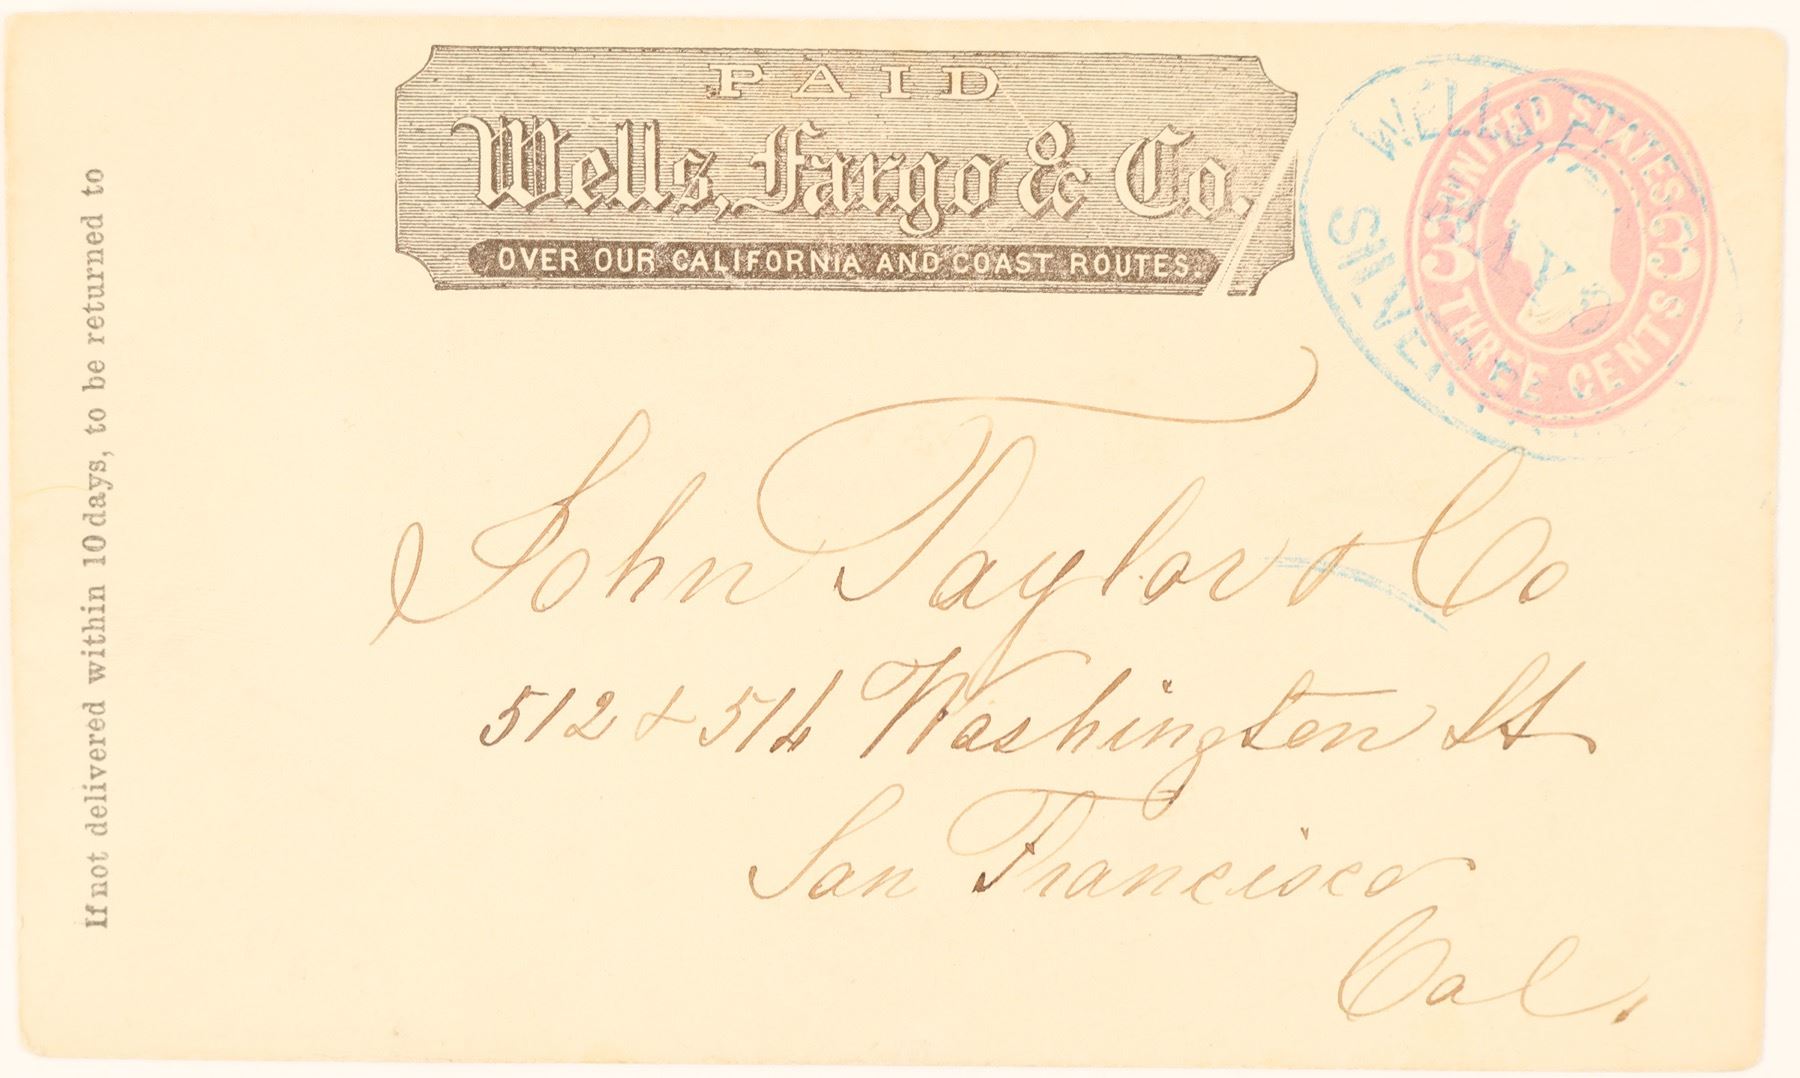 PAID
Wells, Fargo & Co.
OVER OUR CALIFORNIA AND COAST ROUTES.
WELLS, F
SILVER
UNITED STATES
3 3
THREE CENTS
If not delivered within 10 days, to be returned to
John Taylor & Co
512 & 514 Washington St
San Francisco
Cal.